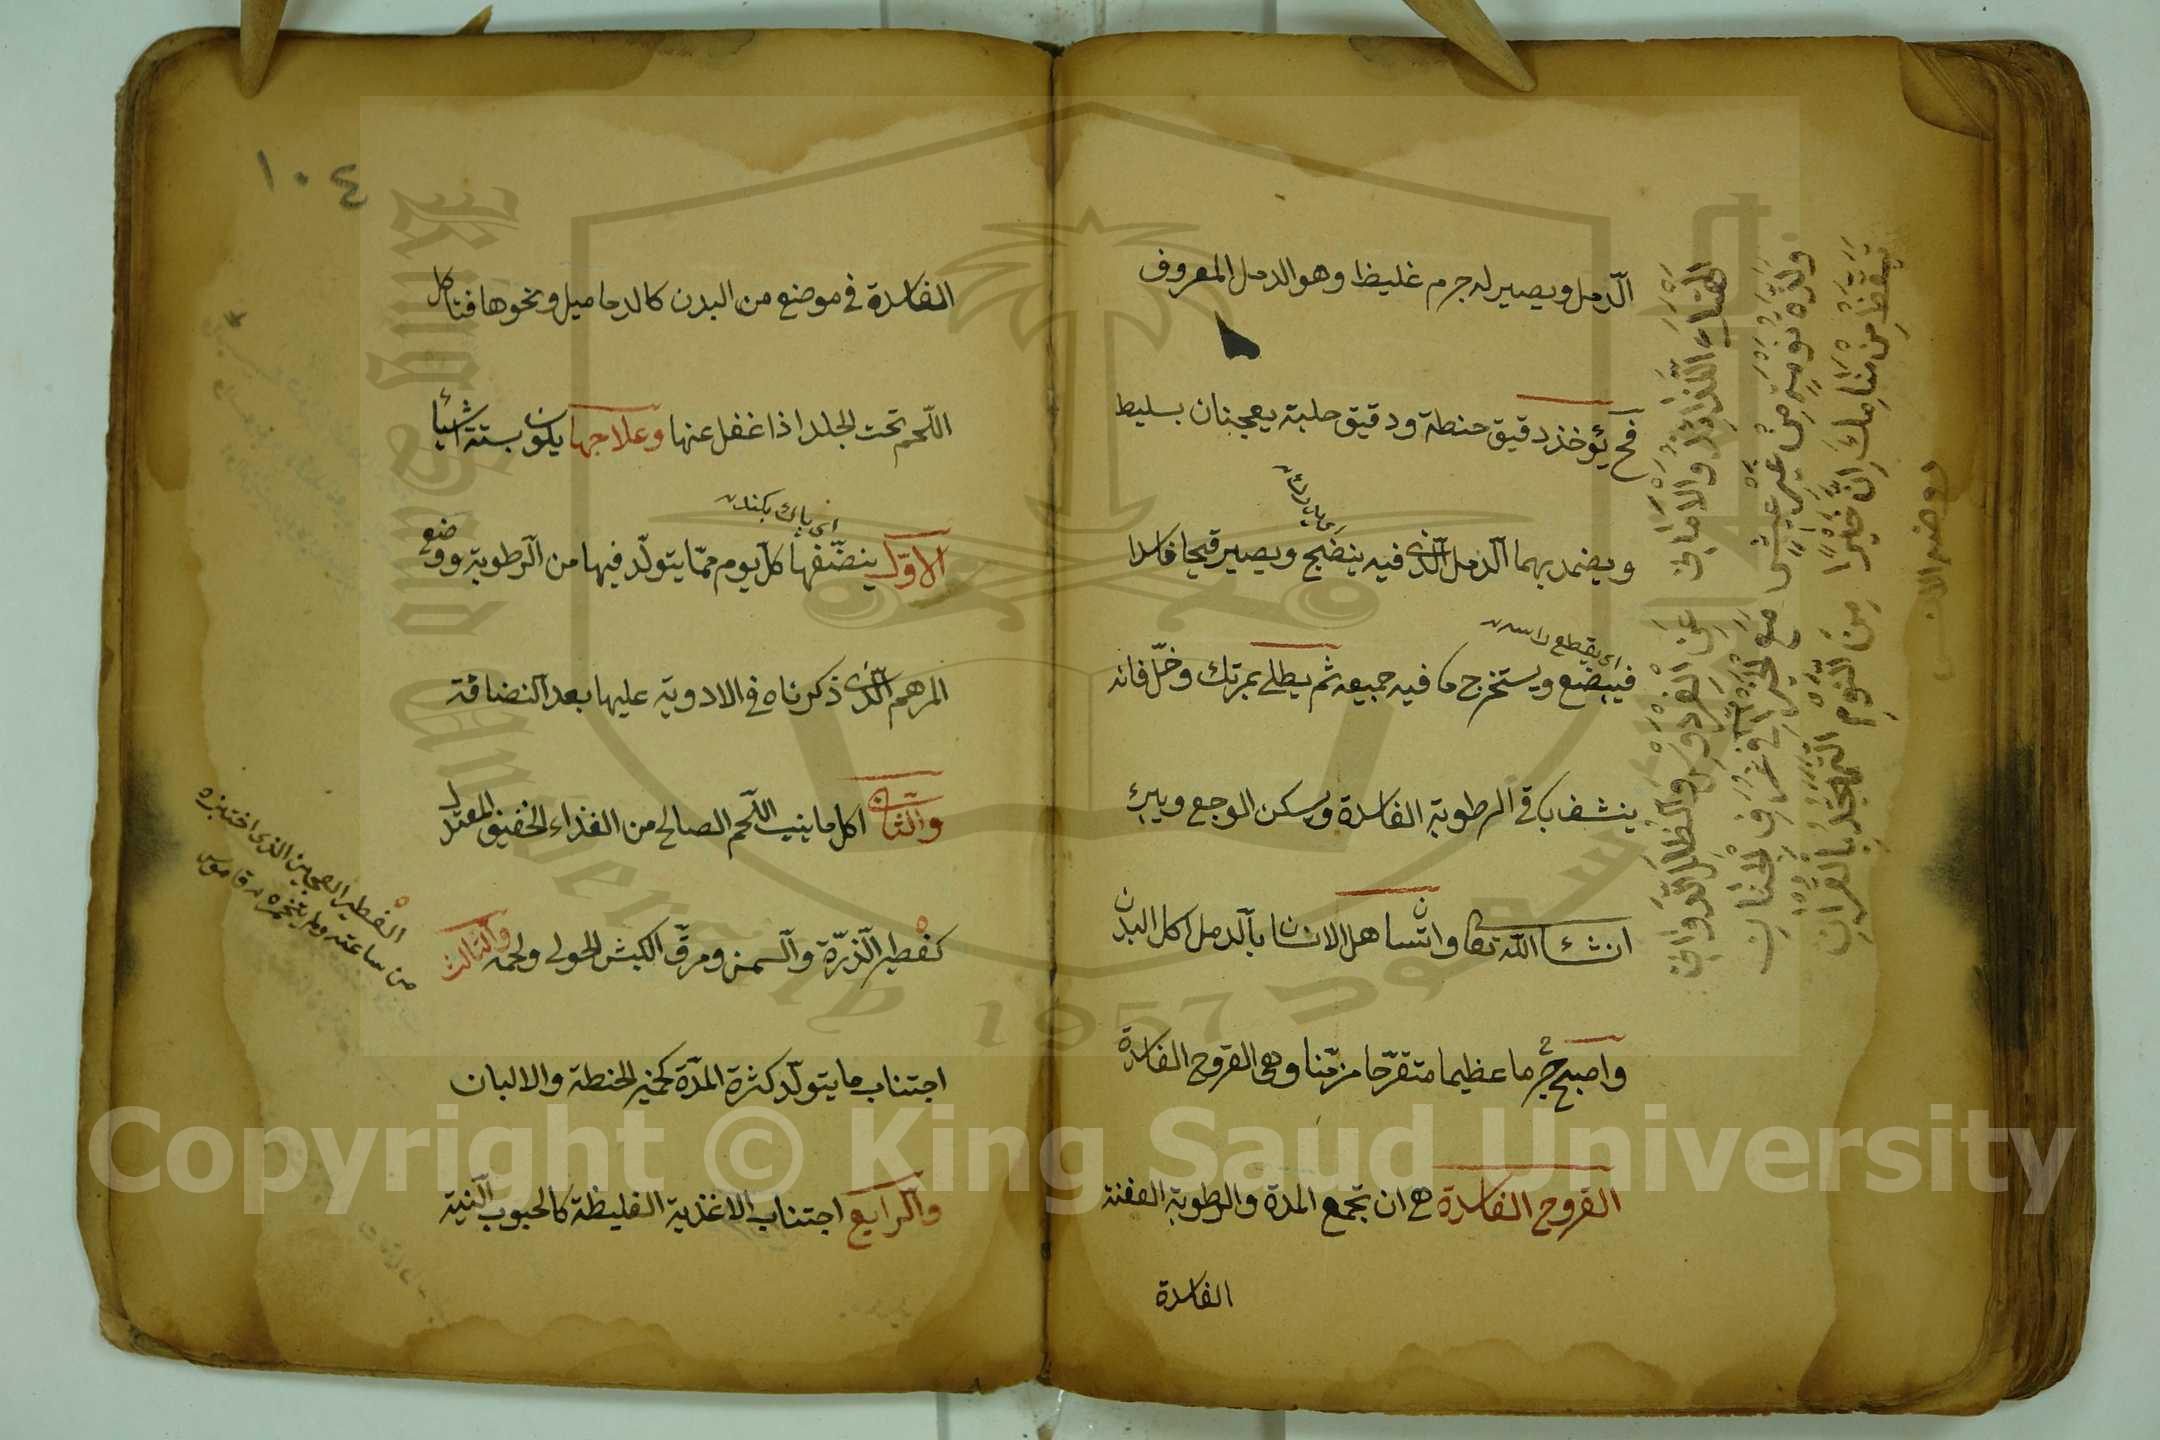 الدمل ويصير له جرم غليظا وهو الدمل المعروف
فح يؤخذ دقيق حنطة ودقيق حلبة يعجنان بسليط
ويضمد بهما الدمل الذى فيه ينضج ويصير قيحا فاسدا
اى يقطع راسه
فيبضع ويستخرج ما فيه جميعه ثم يطلى بمرتك وخل فانه
ينشف باقى الرطوبة الفاسدة ويسكن الوجع ويبرئ
انشاء الله تعا وان تساهل الانسان بالدمل اكل البدن
واصبح جرما عظيما متقرحا مزمنا وهى القروح الفاسدة
القروح الفاسدة هى ان تجمع المدة والرطوبة العفنة
الفاسدة
ولذة نوم من غير عيش مع الخيرات فى غرف الجنان
تيقظ من منامك ان خيرا من النوم التهجد بالقران
١٠٤
الفاسدة فى موضع من البدن كالدماميل ونحوها فتاكل
اللحم تحت الجلد اذا غفل عنها وعلاجها يكون بستة اشيأ
اى پاك بكند
الاول ينضفها كل يوم مما يتولد فيها من الرطوبة ووضع
المرهم الذى ذكرناه فى الادوية عليها بعد النضافة
والثانى اكل ما ينيب اللحم الصالح من الغذاء الخفيف المعتدل
كفطير الذرة والسمن ومرق الكبش الحولى ولحمه والثالث
اجتناب ما يتولد كثرة المدة كخبز الحنطة والالبان
والرابع اجتناب الاغذية الغليظة كالحبوب النية
الفطير العجين الذى اختبزه
من ساعته ولم يتخمره قاموس